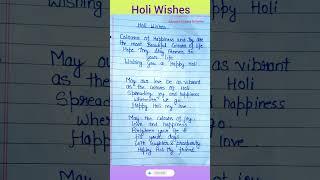 Holi Wishes
Holi Wishes
Colours of Happiness and Joy are
the most Beautiful Colours of life
Hope They stay Forever in
your life
Wishing you a Happy Holi
May our love be as vibrant
as the colours of Holi
Spreading joy and happiness
wherever we go.
Happy Holi my love
May the colours of joy,
love and happiness
Brighten your life &
fill your days
with laughter & prosperity
Happy Holi My friend
May our
vibrant
as the
Holi
Spread
happiness
where
Happy